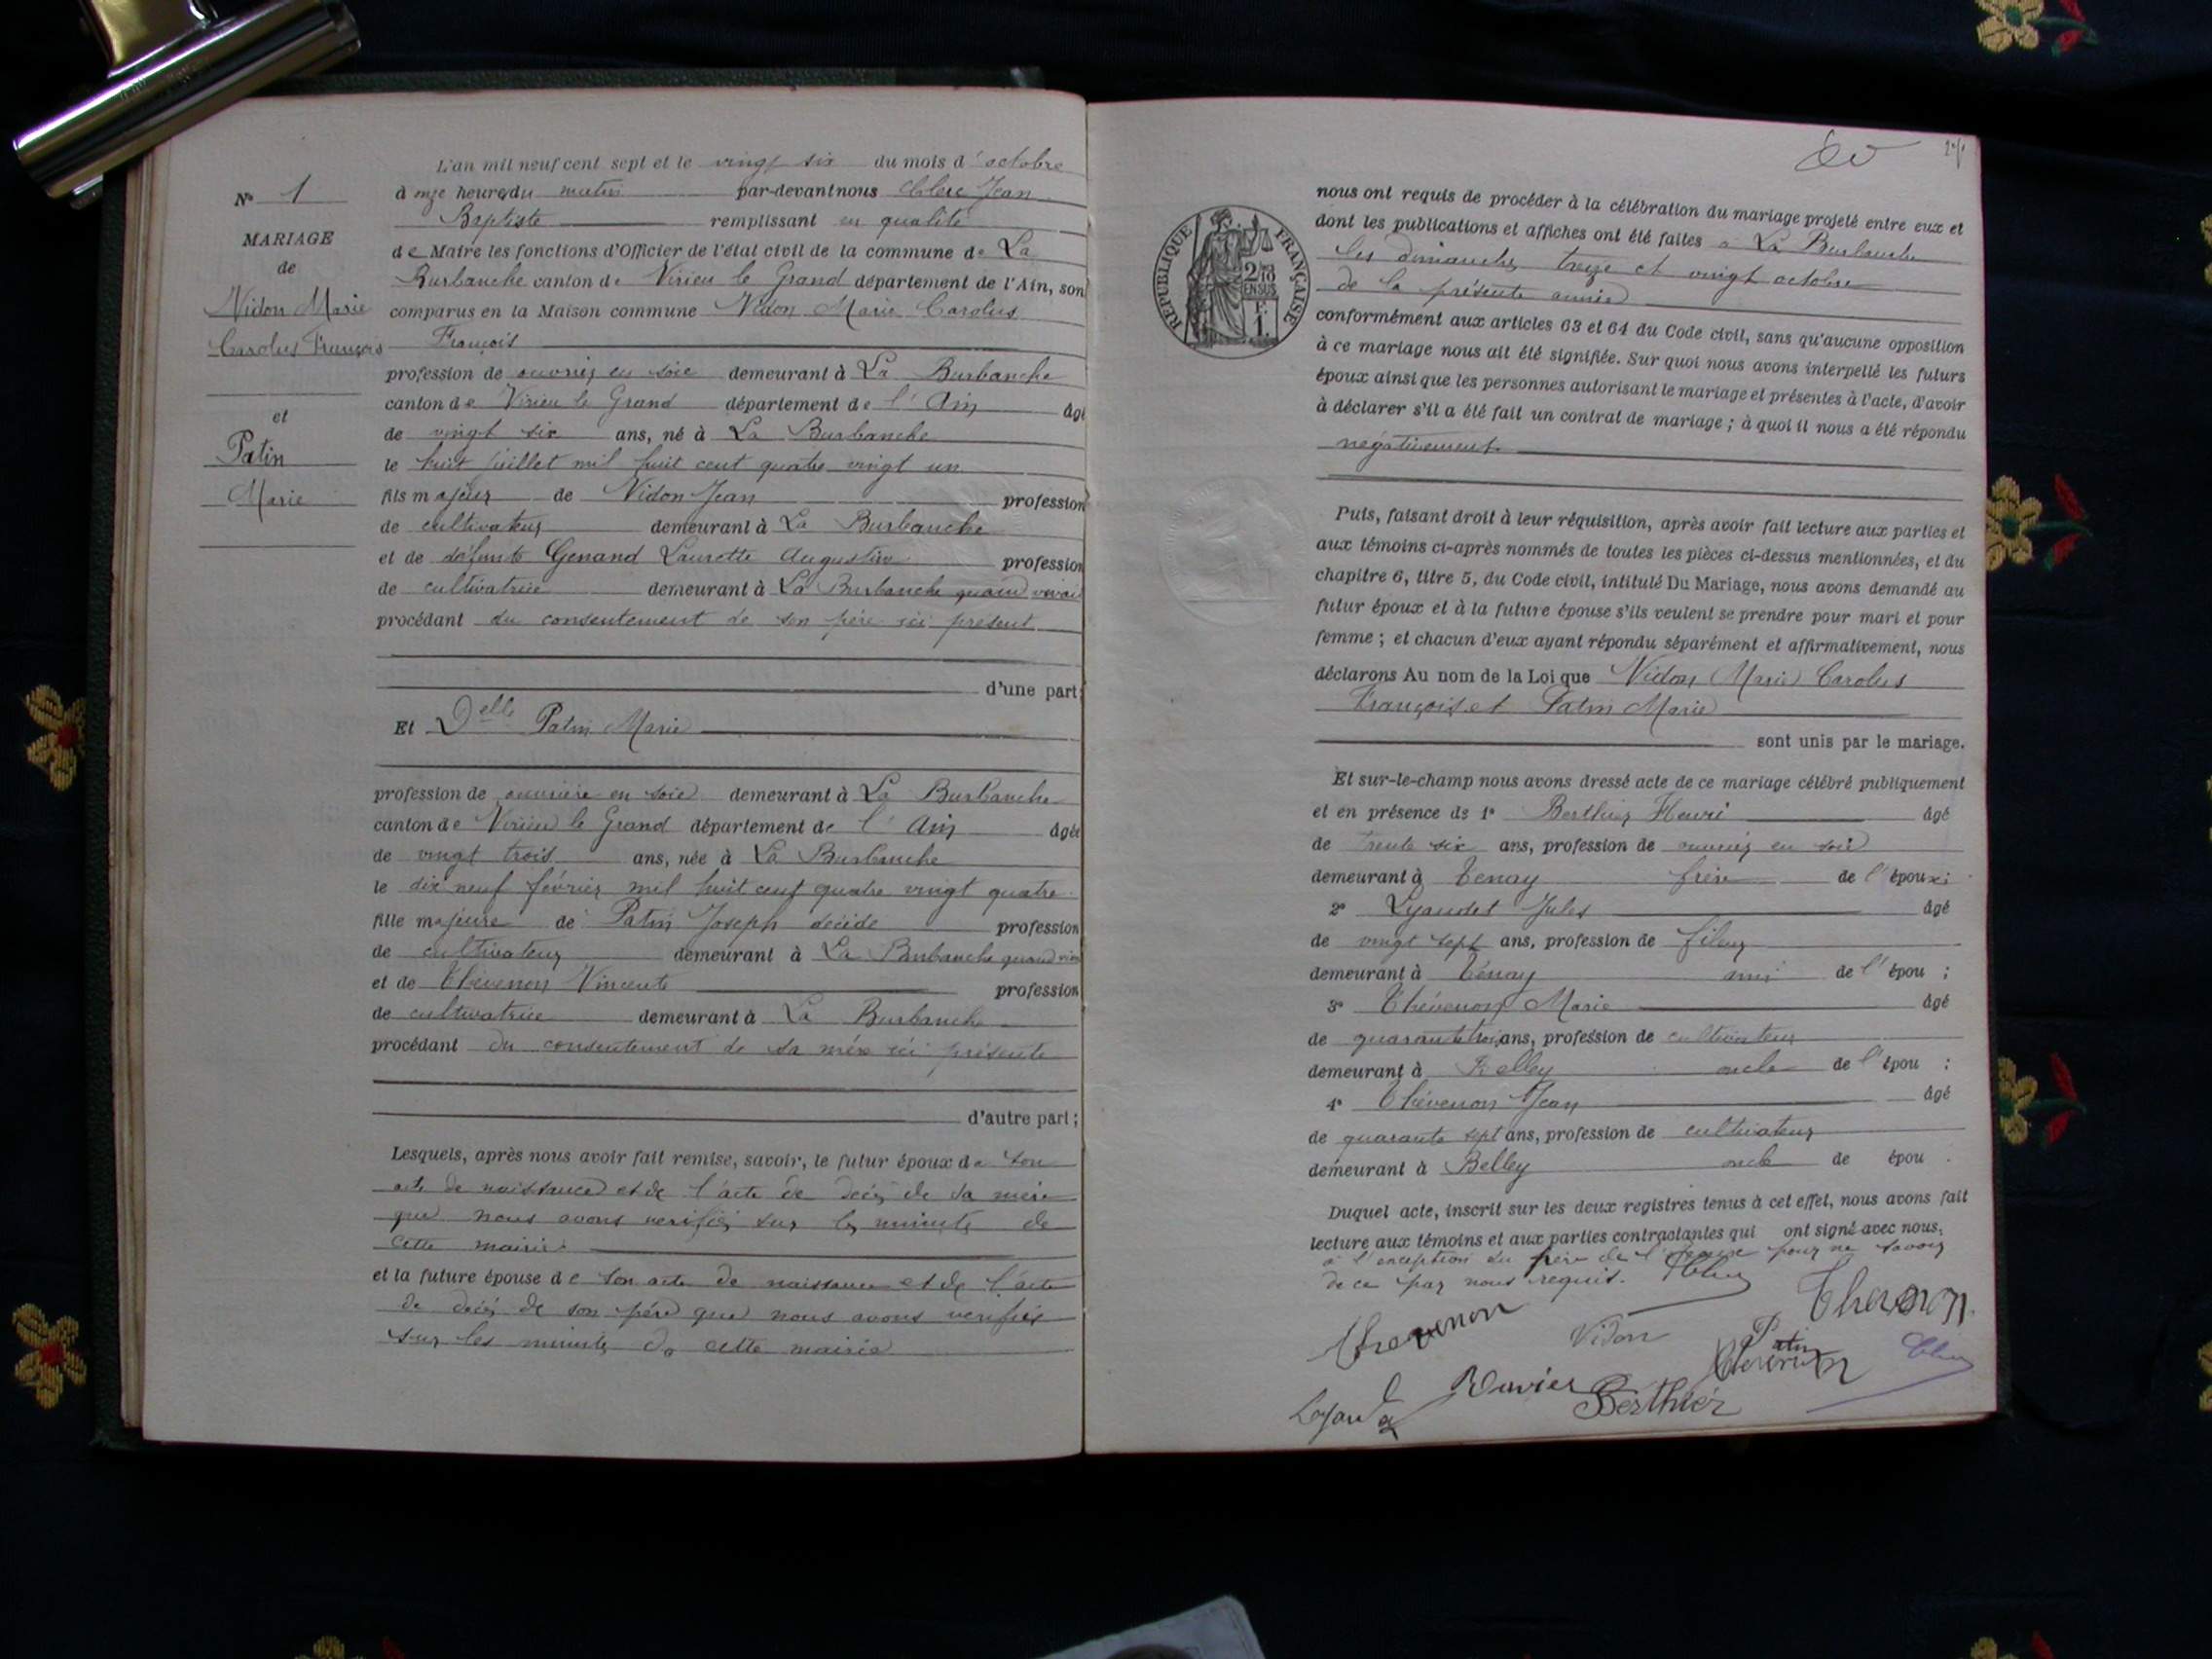 L'an mil neuf cent sept et le vingt six du mois d'octobre
N° 1
à onze heure du matin par-devant nous Clerc Jean
Baptiste remplissant en qualité
MARIAGE
de Maire les fonctions d'Officier de l'état civil de la commune de La
de
Burbanche canton de Virieu le Grand département de l'Ain, son
Vidon Marie
comparus en la Maison commune Vidon Marie Carolus
Carolus François
François
profession de ouvrier en soie demeurant à La Burbanche
canton de Virieu le Grand département de l'Ain âgé
et
de vingt six ans, né à La Burbanche
Patin
le huit juillet mil huit cent quatre vingt un
Marie
fils majeur de Vidon Jean profession
de cultivateur demeurant à La Burbanche
et de défunte Genand Laurette Augustine profession
de cultivatrice demeurant à La Burbanche quand vivait
procédant du consentement de son père ici présent
d'une part;
Et Delle Patin Marie
profession de ouvrière en soie demeurant à La Burbanche
canton de Virieu le Grand département de l'Ain âgée
de vingt trois ans, née à La Burbanche
le dix neuf février mil huit cent quatre vingt quatre
fille majeure de Patin Joseph décédé profession
de cultivateur demeurant à La Burbanche quand
et de Thévenon Vincente profession
de cultivatrice demeurant à La Burbanche
procédant du consentement de sa mère ici présente
d'autre part;
Lesquels, après nous avoir fait remise, savoir, le futur époux de son
acte de naissance et de l'acte de décès de sa mère
que nous avons verifiés sur les minutes de
cette mairie
et la future épouse de son acte de naissance et de l'acte
de décès de son père que nous avons verifiés
sur les minutes de cette mairie
RÉPUBLIQUE FRANÇAISE
2/10 EN SUS
1 F.
nous ont requis de procéder à la célébration du mariage projeté entre eux et
dont les publications et affiches ont été faites à La Burbanche
les dimanches treize et vingt octobre
de la présente année
conformément aux articles 63 et 64 du Code civil, sans qu'aucune opposition
à ce mariage nous ait été signifiée. Sur quoi nous avons interpellé les futurs
époux ainsi que les personnes autorisant le mariage et présentes à l'acte, d'avoir
à déclarer s'il a été fait un contrat de mariage; à quoi il nous a été répondu
négativement.
Puis, faisant droit à leur réquisition, après avoir fait lecture aux parties et
aux témoins ci-après nommés de toutes les pièces ci-dessus mentionnées, et du
chapitre 6, titre 5, du Code civil, intitulé Du Mariage, nous avons demandé au
futur époux et à la future épouse s'ils veulent se prendre pour mari et pour
femme; et chacun d'eux ayant répondu séparément et affirmativement, nous
déclarons Au nom de la Loi que Vidon Marie Carolus
François et Patin Marie
sont unis par le mariage.
Et sur-le-champ nous avons dressé acte de ce mariage célébré publiquement
et en présence de 1° Berthier Henri âgé
de trente six ans, profession de ouvrier en soie
demeurant à Tenay frère de l'époux;
2° Lyaudet Jules âgé
de vingt sept ans, profession de fileur
demeurant à Tenay ami de l'épou ;
3° Thévenon Marie âgé
de quarante trois ans, profession de cultivateur
demeurant à Belley oncle de l'épou ;
4° Thévenon Jean âgé
de quarante sept ans, profession de cultivateur
demeurant à Belley oncle de épou .
Duquel acte, inscrit sur les deux registres tenus à cet effet, nous avons fait
lecture aux témoins et aux parties contractantes qui ont signé avec nous,
à l'exception du père de l'époux pour ne savoir
de ce par nous requis.
Thevenon
Thevenon
Vidon
Patin
Thevenon
Ravier
Berthier